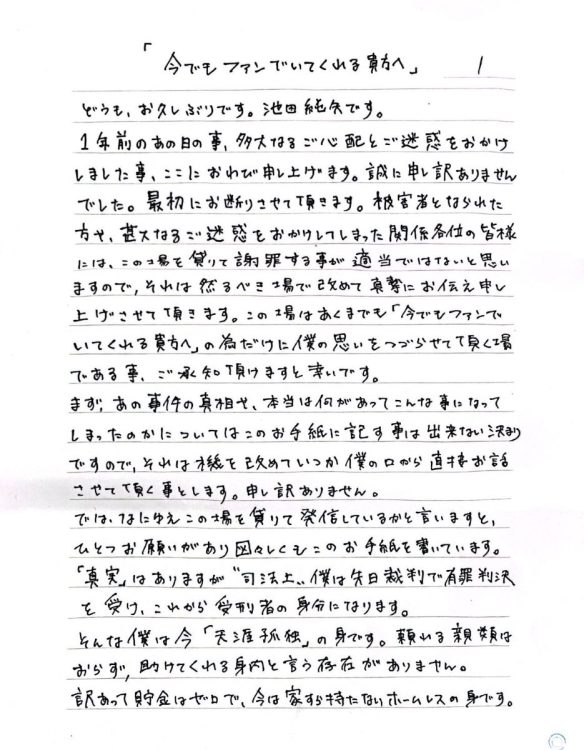 「今でもファンでいてくれる貴方へ」 1
どうも、お久しぶりです。池田純矢です。
1年前のあの日の事、多大なるご心配とご迷惑をおかけ
しました事、ここにおわび申し上げます。誠に申し訳ありません
でした。最初にお断りさせて頂きます。被害者となられた
方や、甚大なるご迷惑をおかけしてしまった関係各位の皆様
には、この場を貸りて謝罪する事が適当ではないと思い
ますので、それは然るべき場で改めて真摯にお伝え申し
上げさせて頂きます。この場はあくまでも「今でもファンで
いてくれる貴方へ」の為だけに僕の思いをつづらせて頂く場
である事、ご承知頂けますと幸いです。
まず、あの事件の真相や、本当は何があってこんな事になって
しまったのかについてはこのお手紙に記す事は出来ない決まり
ですので、それは機を改めていつか僕の口から直接お話
させて頂く事とします。申し訳ありません。
では、なにゆえこの場を貸りて発信しているかと言いますと、
ひとつお願いがあり図々しくもこのお手紙を書いています。
「真実」はありますが"司法上"僕は先日裁判で有罪判決
を受け、これから受刑者の身分になります。
そんな僕は今「天涯孤独」の身です。頼れる親類は
おらず、助けてくれる身内と言う存在がありません。
訳あって貯金はゼロで、今は家すら持たないホームレスの身です。